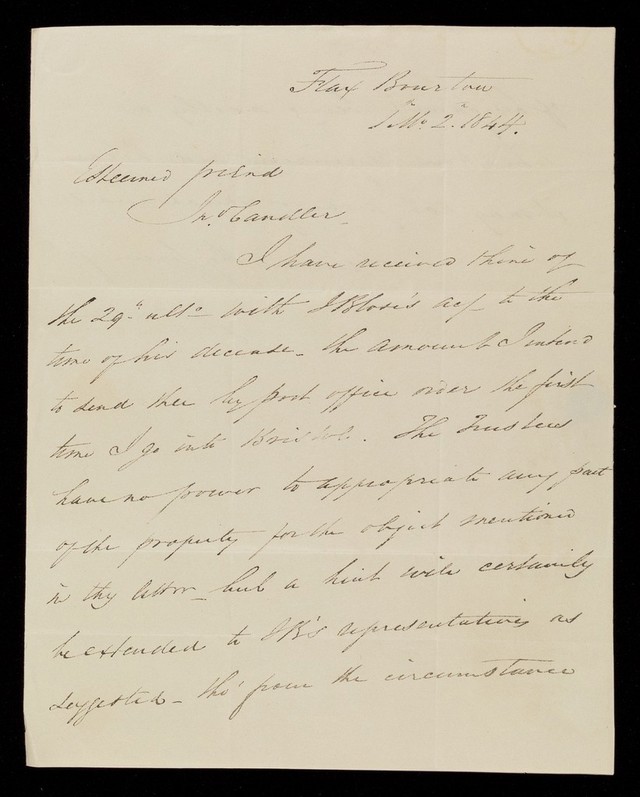 Flax Bourton
1 Mo. 2. 1844.
Esteemed friend
Jno. Candler
I have received thine of
the 29th ulto with J acf to the
time of his decease - the amount I intend
to send thee by post office order the first
time I go into Bristol. The Trustees
have no power to appropriate any part
of the property for the object mentioned
in thy letter - but a hint will certainly
be extended to JB's representatives as
suggested - tho' from the circumstance